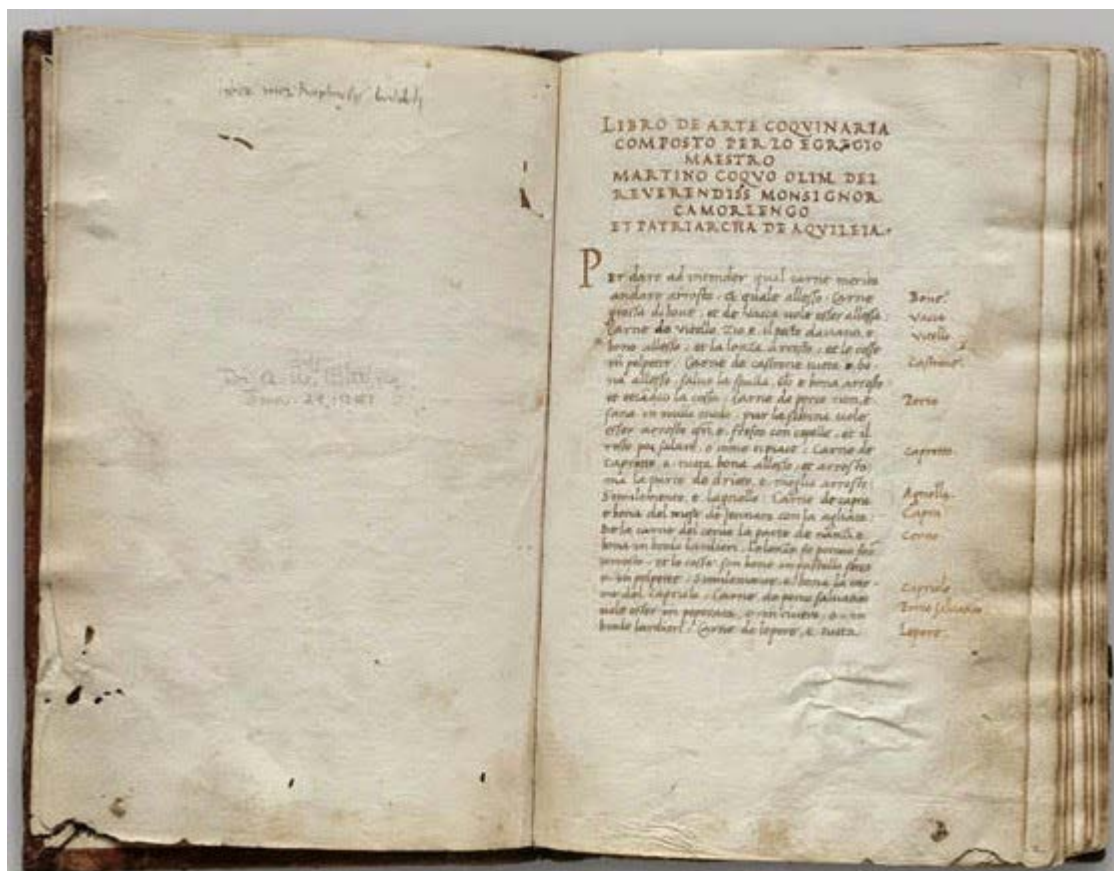 LIBRO DE ARTE COQVINARIA
COMPOSTO PER LO EGREGIO
MAESTRO
MARTINO COQVO OLIM DEL
REVERENDISS MONSIGNOR
CAMORLENGO
ET PATRIARCHA DE AQVILEIA.
Per dare ad intender qual carne merita
andare arrosto, et quale allesso. Carne
grossa di bove, et de vacca vole esser allessa.
Carne de vitello, e, il pecto davanti e
bono allesso, et la lonza arrosto, et le cosse
in polpette. Carne de castrone tutta e bo
na allesso, salvo la spalla, e bona arrosto
et la cossa. Carne de porco non e
sana in nullo modo. pur la vole
esser arrosto e fresco con cepolle, et il
resto poi salare, o come ti piace. Carne de
capretto, e tutta bona allesso, et arrosto
ma la parte de drieto, e meglio arrosto.
Similemente, e lagnello. Carne de capra
e bona del mese de Jennaro con la agliata.
De la carne del cervo la parte de nanzi e
bona in brodo lardieri, se
arrosto, et le cosse son bone in pastello
o in polpette. Similemente e bona la car
ne del capriolo. Carne de porco salvatico
vole esser in peperata, o in civero, o in
brodo lardieri. Carne de lepore, e tutta
Bove.
Vacca
Vitello
Castrone
Porco
Capretto
Agnello.
Capra
Cervo
Capriolo
Porco salvatico
Lepore.